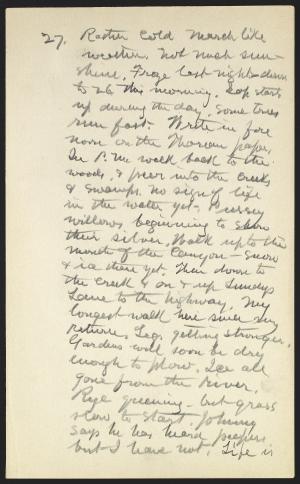 27. Rather cold March like
weather. Not much sun-
shine. Froze last night - down
to 26 this morning. Sap starts
up during the day. Some trees
run fast. Write in fore
noon on the Thoreau paper.
In P.M. walk back to the
woods & peer into the creeks
& swamps. No sign of life
in the water yet. Pussy
willows beginning to show
their silver. Walk up to the
mouth of the Canyon - Snow
& ice there yet. Then down to
the creek & on & up
Lane to the highway. My
longest walk here since my
return. Legs getting stronger.
Gardens will soon be dry
enough to plow. Ice all
gone from the River.
Rye greening - but grass
slow to start. Johnny
says he has heard peepers
but I have not. Life is